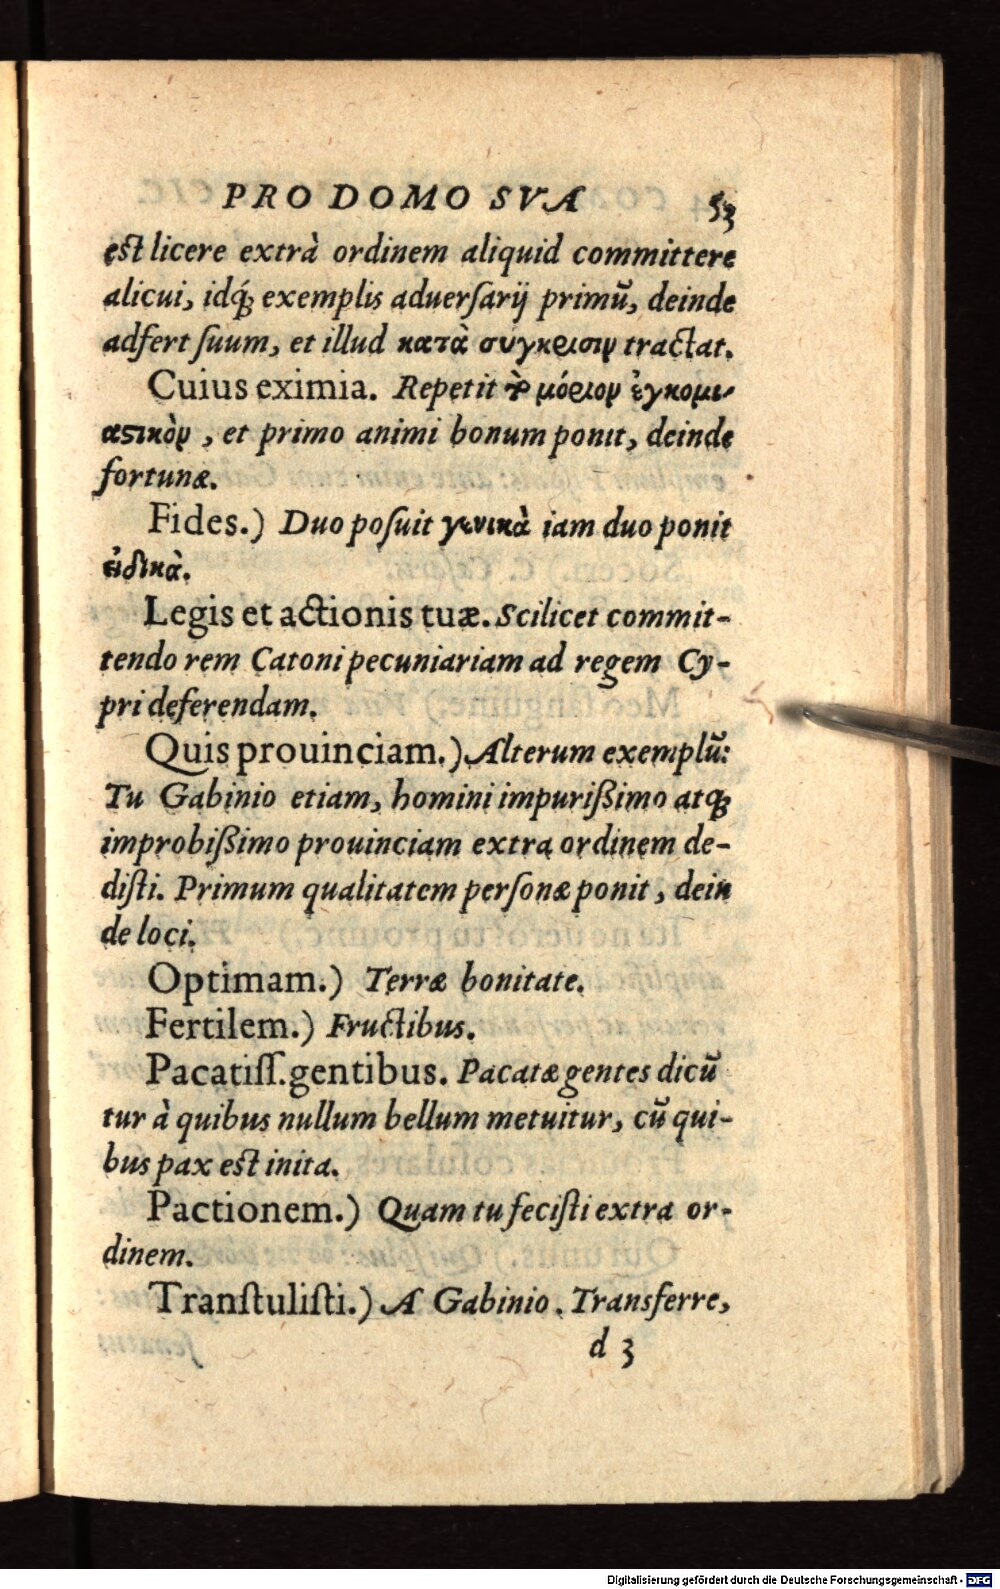 PRO DOMO SVA 53
est licere extrà ordinem aliquid committere
alicui, idq́; exemplis aduersarij primũ, deinde
adfert suum, et illud κατὰ σύγκρισιν tractat.
Cuius eximia. Repetit τὸ μόριον ἐγκομι-
αστικὸν, et primo animi bonum ponit, deinde
fortunæ.
Fides.) Duo posuit γενικὰ iam duo ponit
εἰδικὰ.
Legis et actionis tuæ. Scilicet commit-
tendo rem Catoni pecuniariam ad regem Cy-
pri deferendam.
Quis prouinciam.) Alterum exemplũ:
Tu Gabinio etiam, homini impurißimo atq;
improbißimo prouinciam extra ordinem de-
disti. Primum qualitatem personæ ponit, dein
de loci.
Optimam.) Terræ bonitate.
Fertilem.) Fructibus.
Pacatiss. gentibus. Pacatæ gentes dicũ
tur à quibus nullum bellum metuitur, cũ qui-
bus pax est inita.
Pactionem.) Quam tu fecisti extra or-
dinem.
Transtulisti.) A Gabinio. Transferre,
d 3
Digitalisierung gefördert durch die Deutsche Forschungsgemeinschaft - DFG